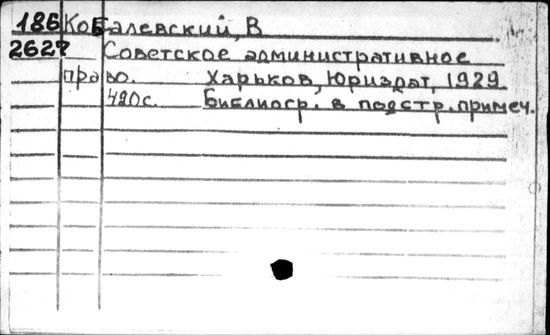 186 Кобалевский, В
2627 Советское административное
право. Харьков, Юриздат, 1929.
420с. Библиогр. в подстр. примеч.